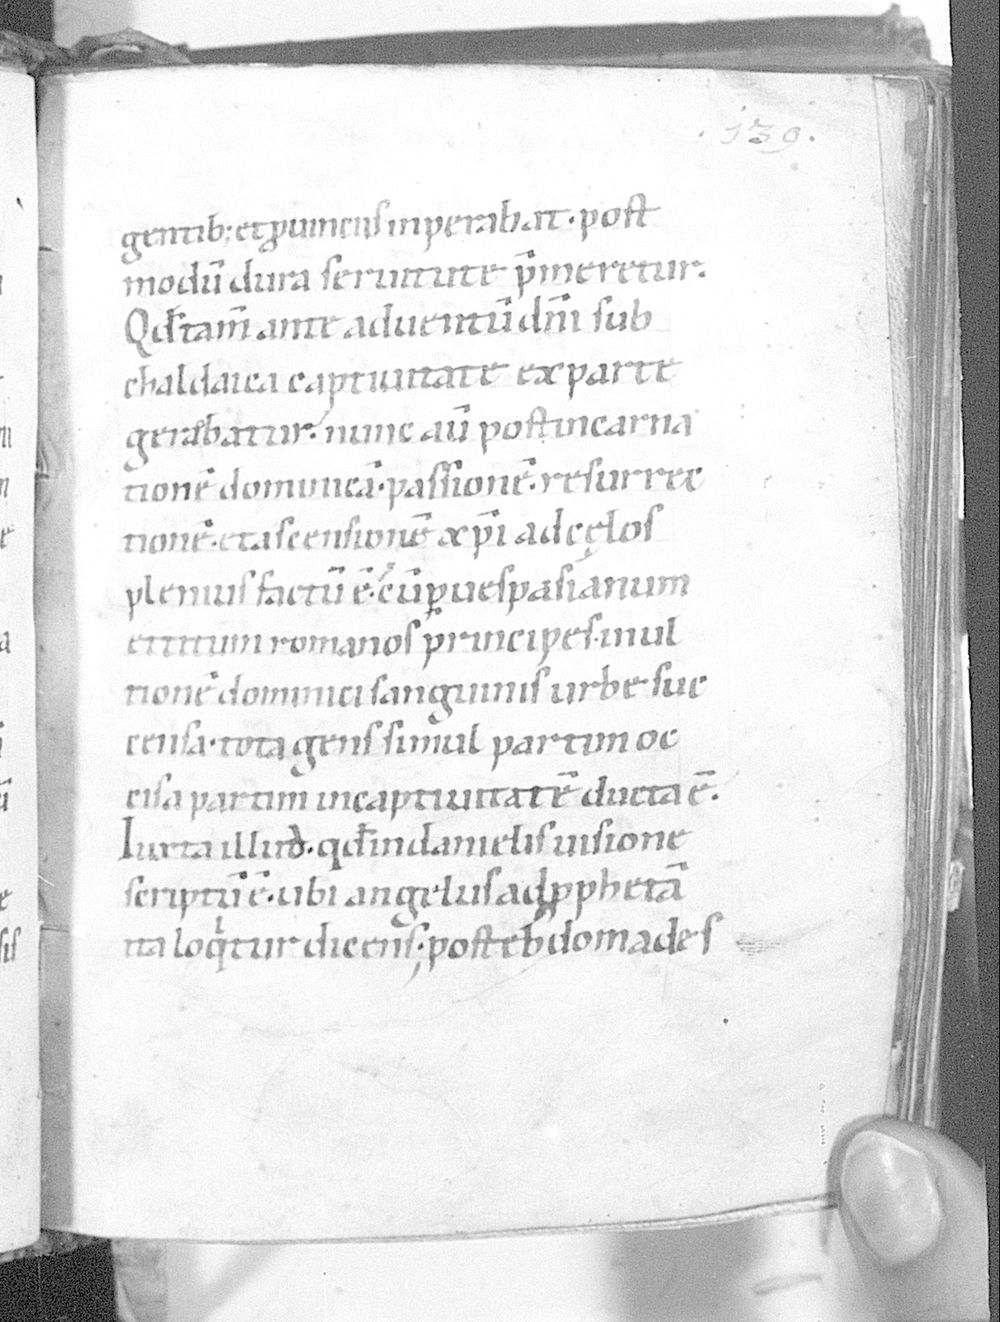 .139.
gentib; et ꝓuinciis inperabat · post
modū dura seruitute p̄meretur.
Qd̄ tam̄ ante aduentū dn̄i sub
chaldaica captiuitate ex parte
gerabatur. nunc aū post incarna
tionē dominicā · passionē · resurrec
tionē · et ascensionē xp̄i ad cęlos
plenius factū ē · cū ꝑ uespasianum
et titum romanos principes · inul
tionē dominici sanguinis urbe suc
censa · tota gens simul partim oc
cisa partim in captiuitatē ducta ē.
Iuxta illud · qd̄ in danielis uisione
scriptū ē · ubi angelus ad ꝓphetā
ita loqͥtur dicens; post ebdomades